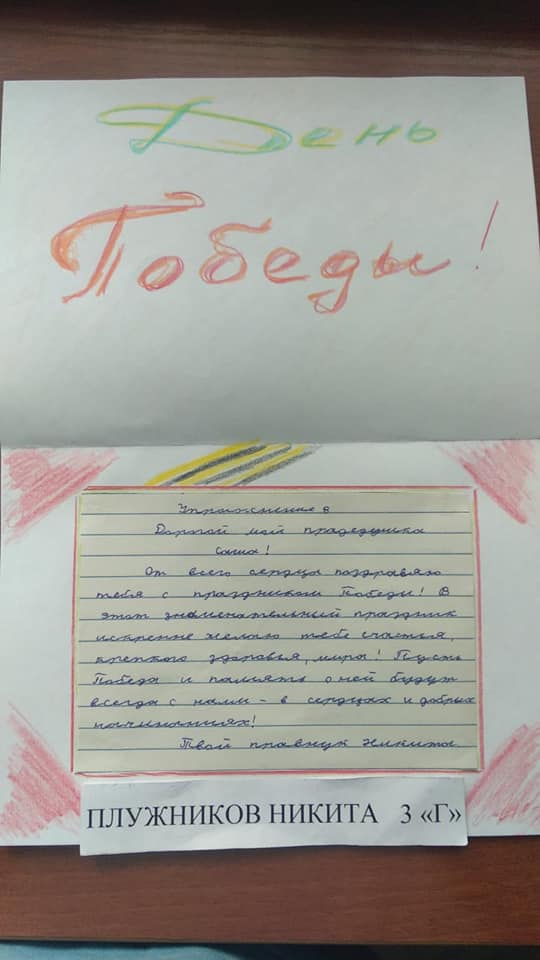 День
Победы!
Упражнение 8
Дорогой мой прадедушка
Саша!
От всего сердца поздравяю
тебя с праздником Победы! В
этот знаменательный праздник
искренне желаю тебе счастья,
крепкого здоровья, мира! Пусть
Победа и память о ней будут
всегда с нами - в сердцах и добрых
начинаниях!
Твой правнук Никита.
ПЛУЖНИКОВ НИКИТА 3 «Г»